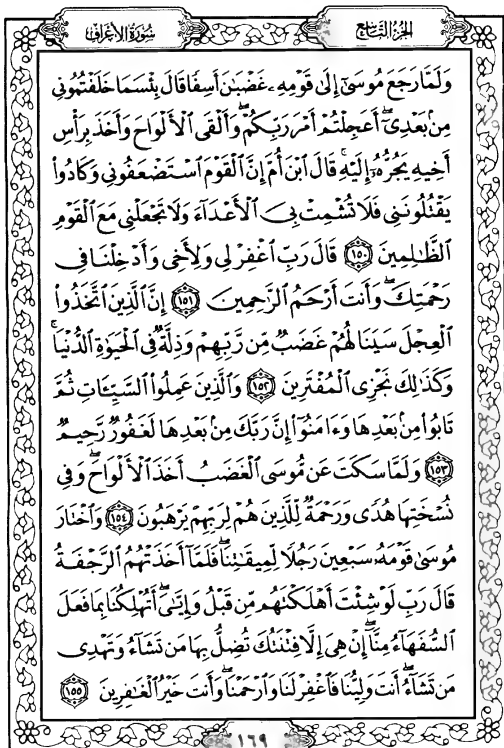 الجزء التاسع
سورة الأعراف
وَلَمَّا رَجَعَ مُوسَىٰٓ إِلَىٰ قَوْمِهِۦ غَضْبَـٰنَ أَسِفًا قَالَ بِئْسَمَا خَلَفْتُمُونِى
مِنۢ بَعْدِىٓ ۖ أَعَجِلْتُمْ أَمْرَ رَبِّكُمْ ۖ وَأَلْقَى ٱلْأَلْوَاحَ وَأَخَذَ بِرَأْسِ
أَخِيهِ يَجُرُّهُۥٓ إِلَيْهِ ۚ قَالَ ٱبْنَ أُمَّ إِنَّ ٱلْقَوْمَ ٱسْتَضْعَفُونِى وَكَادُوا۟
يَقْتُلُونَنِى فَلَا تُشْمِتْ بِىَ ٱلْأَعْدَآءَ وَلَا تَجْعَلْنِى مَعَ ٱلْقَوْمِ
ٱلظَّـٰلِمِينَ ١٥٠ قَالَ رَبِّ ٱغْفِرْ لِى وَلِأَخِى وَأَدْخِلْنَا فِى
رَحْمَتِكَ ۖ وَأَنتَ أَرْحَمُ ٱلرَّٰحِمِينَ ١٥١ إِنَّ ٱلَّذِينَ ٱتَّخَذُوا۟
ٱلْعِجْلَ سَيَنَالُهُمْ غَضَبٌ مِّن رَّبِّهِمْ وَذِلَّةٌ فِى ٱلْحَيَوٰةِ ٱلدُّنْيَا ۚ
وَكَذَٰلِكَ نَجْزِى ٱلْمُفْتَرِينَ ١٥٢ وَٱلَّذِينَ عَمِلُوا۟ ٱلسَّيِّـَٔاتِ ثُمَّ
تَابُوا۟ مِنۢ بَعْدِهَا وَءَامَنُوٓا۟ إِنَّ رَبَّكَ مِنۢ بَعْدِهَا لَغَفُورٌ رَّحِيمٌ
١٥٣ وَلَمَّا سَكَتَ عَن مُّوسَى ٱلْغَضَبُ أَخَذَ ٱلْأَلْوَاحَ ۖ وَفِى
نُسْخَتِهَا هُدًى وَرَحْمَةٌ لِّلَّذِينَ هُمْ لِرَبِّهِمْ يَرْهَبُونَ ١٥٤ وَٱخْتَارَ
مُوسَىٰ قَوْمَهُۥ سَبْعِينَ رَجُلًا لِّمِيقَـٰتِنَا ۖ فَلَمَّآ أَخَذَتْهُمُ ٱلرَّجْفَةُ
قَالَ رَبِّ لَوْ شِئْتَ أَهْلَكْتَهُم مِّن قَبْلُ وَإِيَّـٰىَ ۖ أَتُهْلِكُنَا بِمَا فَعَلَ
ٱلسُّفَهَآءُ مِنَّآ ۖ إِنْ هِىَ إِلَّا فِتْنَتُكَ تُضِلُّ بِهَا مَن تَشَآءُ وَتَهْدِى
مَن تَشَآءُ ۖ أَنتَ وَلِيُّنَا فَٱغْفِرْ لَنَا وَٱرْحَمْنَا ۖ وَأَنتَ خَيْرُ ٱلْغَـٰفِرِينَ ١٥٥
١٦٩